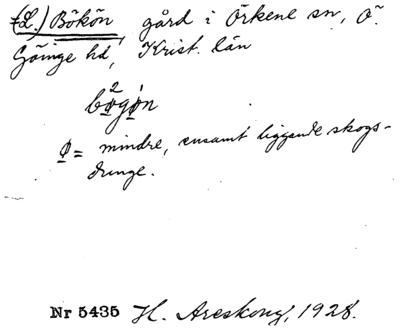 (L.) Bökön, gård i Örkene sn, Ö.
Göinge hd, Krist. län
bo̱²gǿ̱n
Ø̱ = mindre, ensamt liggande skogs-
dunge.
Nr 5435 H. Areskoug, 1928.